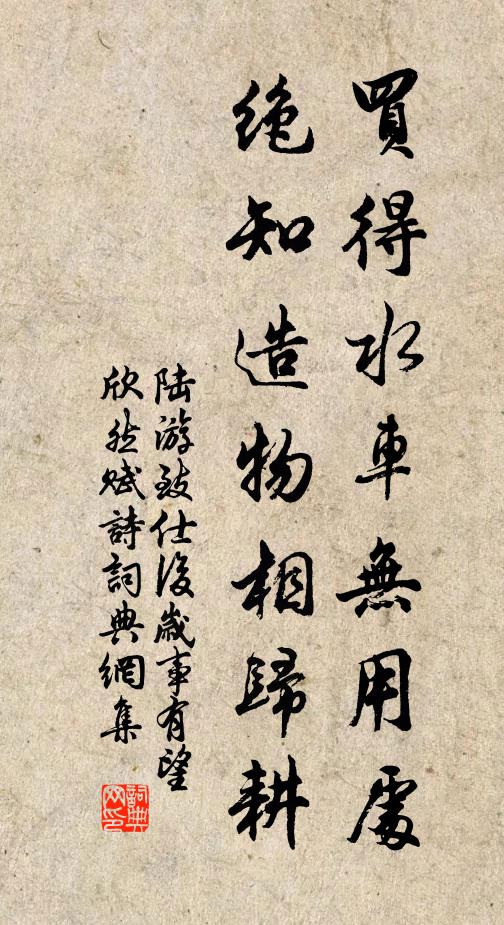 買得水車無用處
絶知造物相歸耕
陸游致仕後歲事有望
欣然賦詩詞典網集
詞典網印